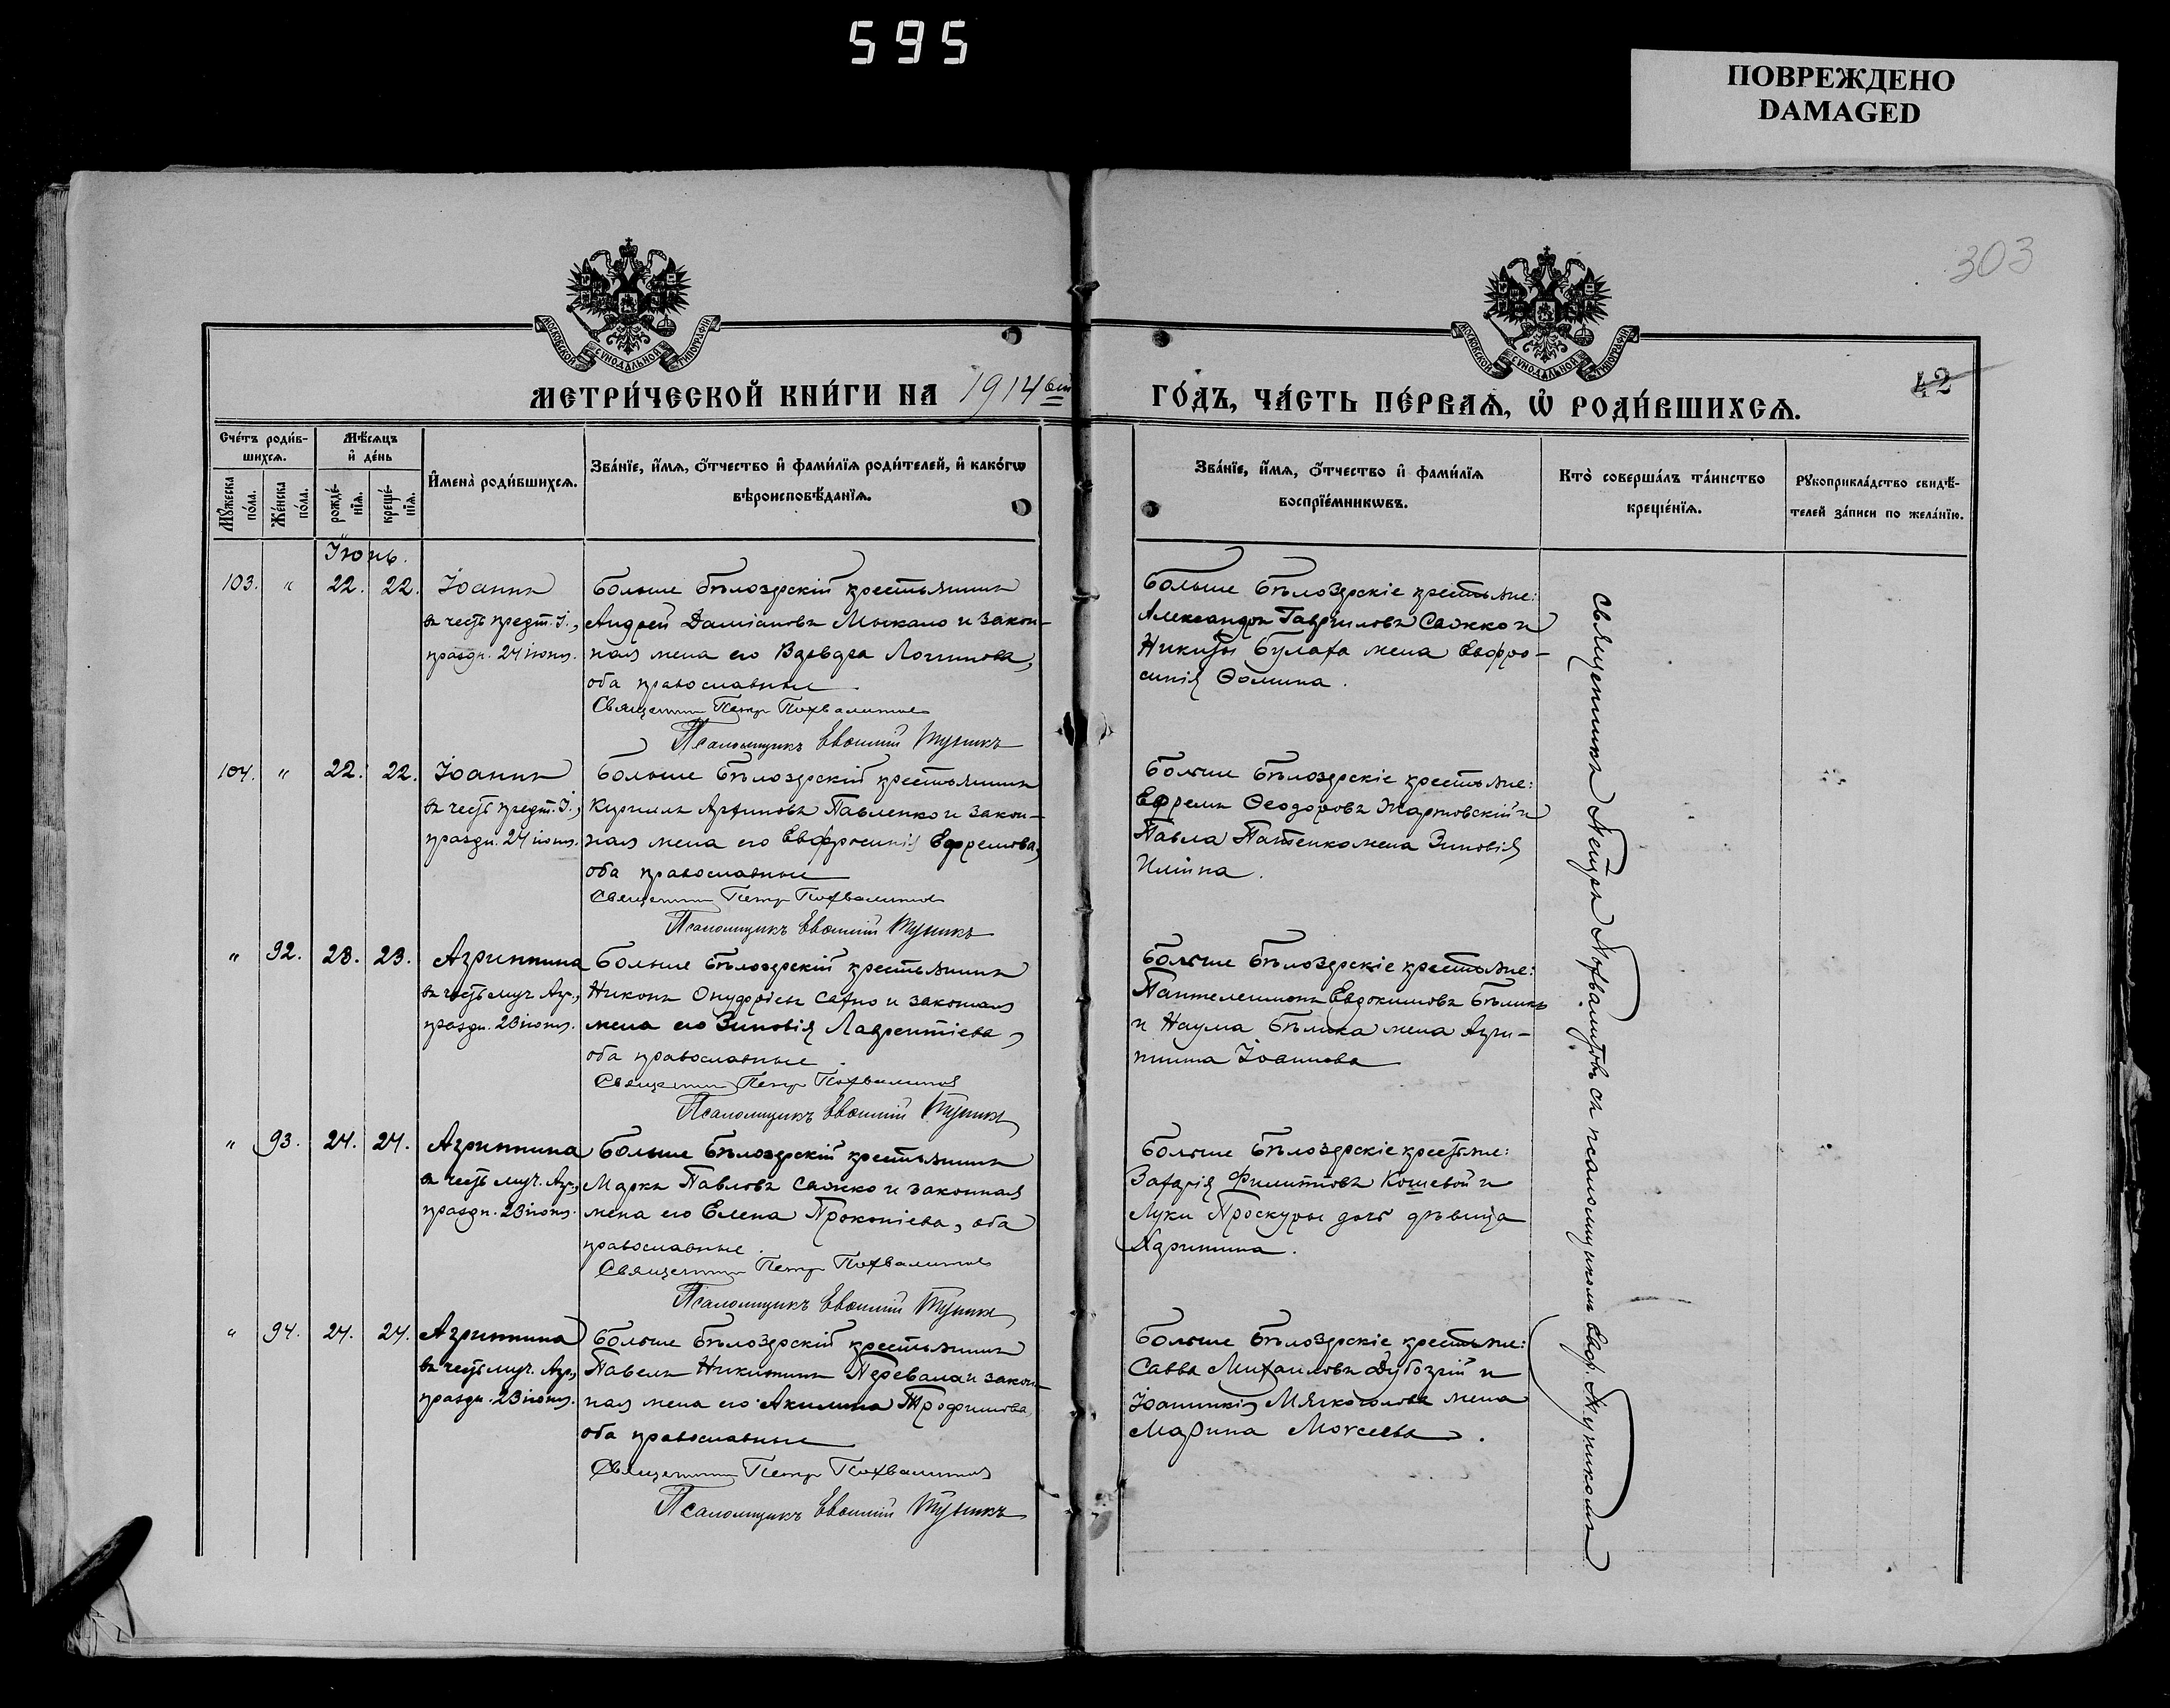 595
ПОВРЕЖДЕНО
DAMAGED
303
МОСКОВСКОЙ СѴНОДАЛЬНОЙ ТИПОГРАФІИ
МОСКОВСКОЙ СѴНОДАЛЬНОЙ ТИПОГРАФІИ
МЕТРИ́ЧЕСКОЙ КНИ́ГИ НА 1914 ый
ГО́ДЪ, ЧА́СТЬ ПЕ́РВАѦ, Ѽ РОДИ́ВШИХСѦ.
42
Сче́тъ роди́в-
шихсѧ.
Мꙋ́жеска по́ла.
Же́нска по́ла.
Мѣ́сѧцъ
и҆ де́нь
рожде́-нїѧ.
креще́-нїѧ.
И҆мена̀ роди́вшихсѧ.
Зва́нїе, и҆́мѧ, ѻ҆́тчество и҆ фами́лїѧ роди́телей, и҆ како́гѡ
вѣроисповѣ́данїѧ.
Зва́нїе, и҆́мѧ, ѻ҆́тчество и҆ фами́лїѧ
воспрїе́мникѡвъ.
Кто̀ соверша́лъ та́инство
креще́нїѧ.
Рꙋкоприкла́дство свидѣ́-
телей за́писи по жела́нїю.
Іюнь.
103. " 22. 22. Іоаннъ
въ честь предт. І.,
праздн. 24 іюня.
Больше Бѣлозерскій крестьянинъ
Андрей Даміановъ Мыкало и закон-
ная жена его Логинова,
оба православные
Священникъ Петръ Похвалитовъ
Псаломщикъ Евѳимій Тупикъ
Больше Бѣлозерскіе крестьяне:
Александръ Гавріиловъ Сажко и
Никиты Булаха жена Евфро-
синія Ѳомина.
104. " 22. 22. Іоаннъ
въ честь предт. І.,
праздн. 24 іюня.
Больше Бѣлозерскій крестьянинъ
Кириллъ Павленко и закон-
ная жена его Евфросинія Ефремова,
оба православные
Священникъ Петръ Похвалитовъ
Псаломщикъ Евѳимій Тупикъ
Больше Бѣлозерскіе крестьяне:
Ефремъ Ѳеодоровъ Жарновскій и
Павла жена Зиновія
Иліина.
" 92. 23. 23. Агриппина
въ честь муч. Агр.,
праздн. 23 іюня.
Больше Бѣлозерскій крестьянинъ
Никонъ Онуфріевъ Сахно и законная
жена его Зиновія Лаврентіева,
оба православные.
Священникъ Петръ Похвалитовъ
Псаломщикъ Евѳимій Тупикъ
Больше Бѣлозерскіе крестьяне:
Пантелеимонъ Евдокимовъ Бѣликъ
и Наума Бѣлика жена Агри-
пина Іоаннова
" 93. 24. 24. Агриппина
въ честь муч. Агр.,
праздн. 23 іюня.
Больше Бѣлозерскій крестьянинъ
Маркъ Павловъ Сажко и законная
жена его Елена Прокопіева, оба
православные.
Священникъ Петръ Похвалитовъ
Псаломщикъ Евѳимій Тупикъ
Больше Бѣлозерскіе крестьяне:
Захарія Филипповъ Кошевой и
Луки Проскуры дочь дѣвица
Харитина.
" 94. 24. 24. Агриппина
въ честь муч. Агр.,
праздн. 23 іюня.
Больше Бѣлозерскій крестьянинъ
Павелъ Никитинъ Перевала и закон-
ная жена его Акилина Трофимова,
оба православные
Священникъ Петръ Похвалитовъ
Псаломщикъ Евѳимій Тупикъ
Больше Бѣлозерскіе крестьяне:
Савва Михаиловъ и
Іоанникія Мягкоголова жена
Марина Моисеева.
Священникъ Петръ Похвалитовъ съ псаломщикомъ Евѳ. Тупикомъ